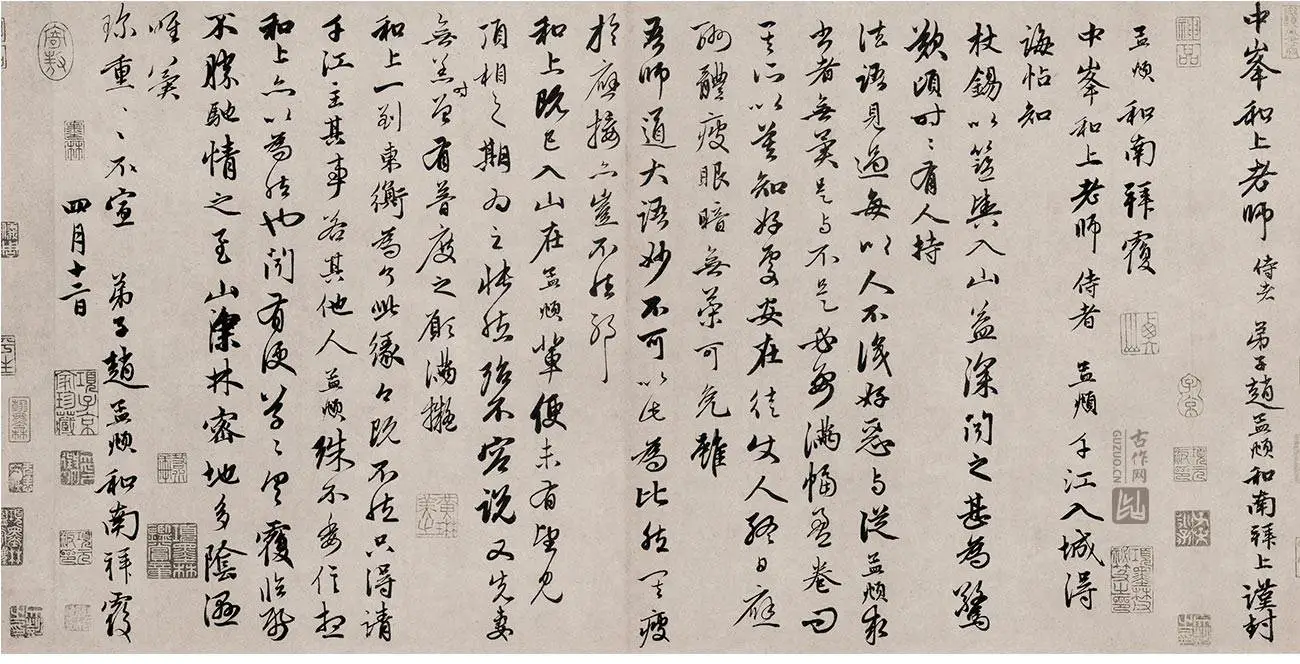 中峯和上老師 侍者 弟子趙孟頫和南拜上謹封
孟頫和南拜覆
中峯和上老師侍者孟頫千江入城得
誨帖知
杖錫以籃輿入山益深聞之甚為驚
歎頃時〻有人持
法語見過每以人不識好惡与從孟頫求
書者無異是与不是必要滿幅盈卷問
其所以莫知好處安在徒使人終日應
酬體瘦眼暗無策可免雖
吾師道大語妙不可以此為比然其疲
於應接亦豈不然邪
和上既已入山在孟頫輩便未有望見
頂相之期為之悵然殆不容說又先妻
無恙時曾有普度之願滿擬
和上一到東衡為了此緣今既不然只得請
千江主其事若其他人孟頫殊不委信想
和上亦以為然也聞有便草〻具覆臨紙
不勝馳情之至山深林密地多陰濕
唯冀
珍重〻〻不宣 弟子趙孟頫和南拜覆
四月十二日
神品
子京
項子京家珍藏
古作网
GUZUO.CN